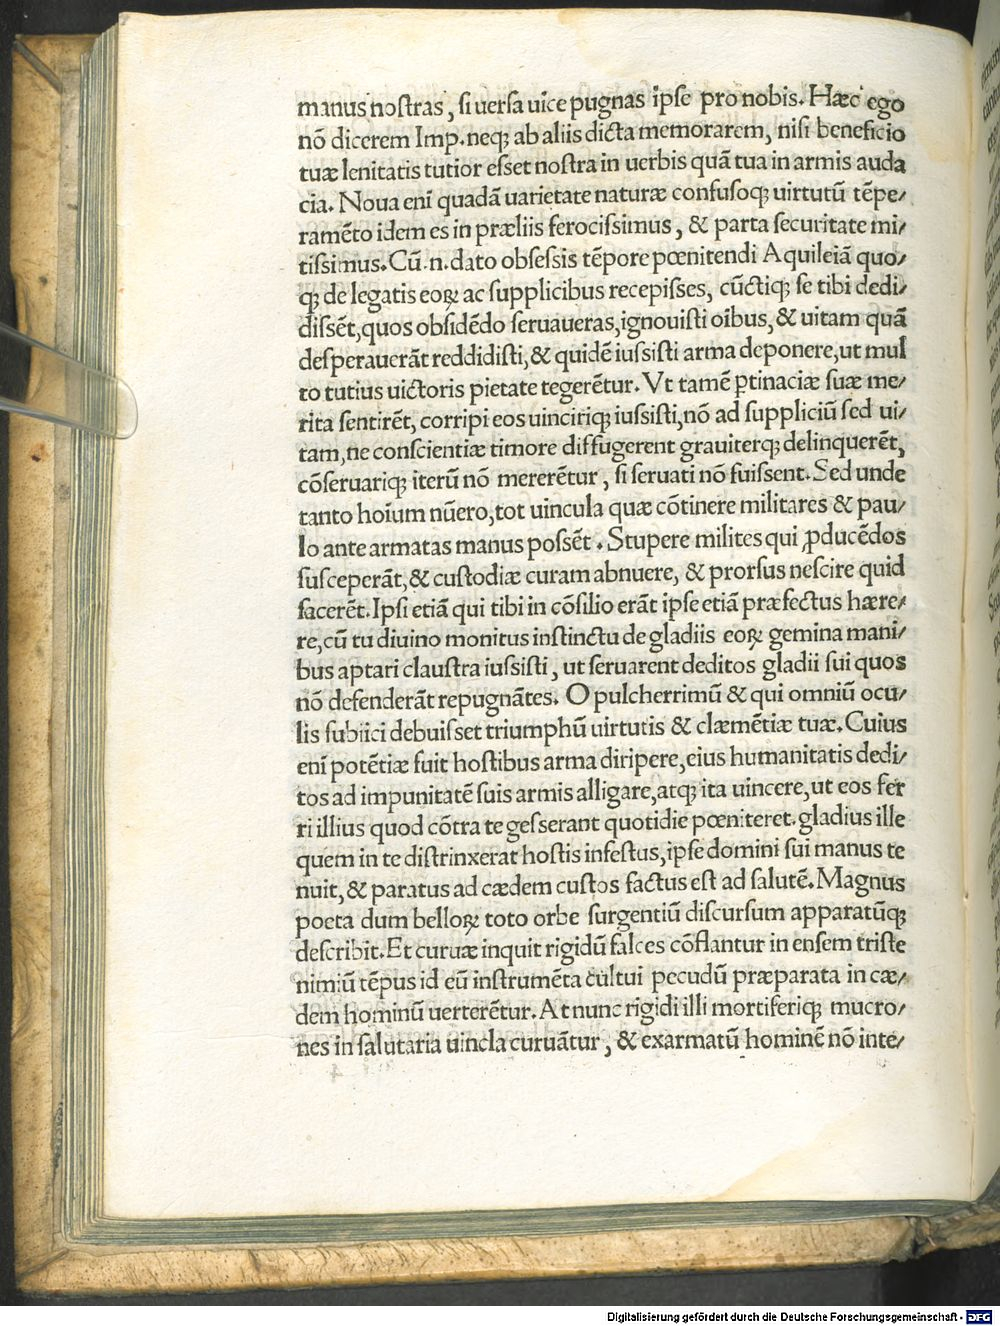 manus nostras, si uersa uice pugnas ipse pro nobis. Hæc ego
nō dicerem Imp. neqꝫ ab aliis dicta memorarem, nisi beneficio
tuæ lenitatis tutior esset nostra in uerbis quā tua in armis auda
cia. Noua eni quadā uarietate naturæ confusoqꝫ uirtutū tēpe/
ramēto idem es in præliis ferocissimus, & parta securitate mi/
tissimus. Cū.n. dato obsessis tēpore pœnitendi Aquileiā quo/
qꝫ de legatis eoꝝ ac supplicibus recepisses, cūctiqꝫ se tibi dedi/
dissēt, quos obsidēdo seruaueras, ignouisti oībus, & uitam quā
desperauerāt reddidisti, & quidē iussisti arma deponere, ut mul
to tutius uictoris pietate tegerētur. Vt tamē ꝑtinaciæ suæ me/
rita sentirēt, corripi eos uinciriqꝫ iussisti, nō ad suppliciū sed ui/
tam, ne conscientiæ timore diffugerent grauiterqꝫ delinquerēt,
cōseruariqꝫ iterū nō mererētur, si seruati nō fuissent. Sed unde
tanto hoium nūero, tot uincula quæ cōtinere militares & pau/
lo ante armatas manus possēt. Stupere milites qui ꝓducēdos
susceperāt, & custodiæ curam abnuere, & prorsus nescire quid
facerēt. Ipsi etiā qui tibi in cōsilio erāt ipse etiā præfectus hære/
re, cū tu diuino monitus instinctu de gladiis eoꝝ gemina mani/
bus aptari claustra iussisti, ut seruarent deditos gladii sui quos
nō defenderāt repugnātes. O pulcherrimū & qui omniū ocu/
lis subiici debuisset triumphū uirtutis & clæmētiæ tuæ. Cuius
enī potētiæ fuit hostibus arma diripere, eius humanitatis dedi/
tos ad impunitatē suis armis alligare, atqꝫ ita uincere, ut eos fer
ri illius quod cōtra te gesserant quotidie pœniteret. gladius ille
quem in te distrinxerat hostis infestus, ipse domini sui manus te
nuit, & paratus ad cædem custos factus est ad salutē. Magnus
poeta dum belloꝝ toto orbe surgentiū discursum apparatūqꝫ
describit. Et curuæ inquit rigidū falces cōflantur in ensem triste
nimiū tēpus id eū instrumēta cultui pecudū præparata in cæ/
dem hominū uerterētur. At nunc rigidi illi mortiferiqꝫ mucro/
nes in salutaria uincla curuātur, & exarmatū hominē nō inte/
Digitalisierung gefördert durch die Deutsche Forschungsgemeinschaft - DFG